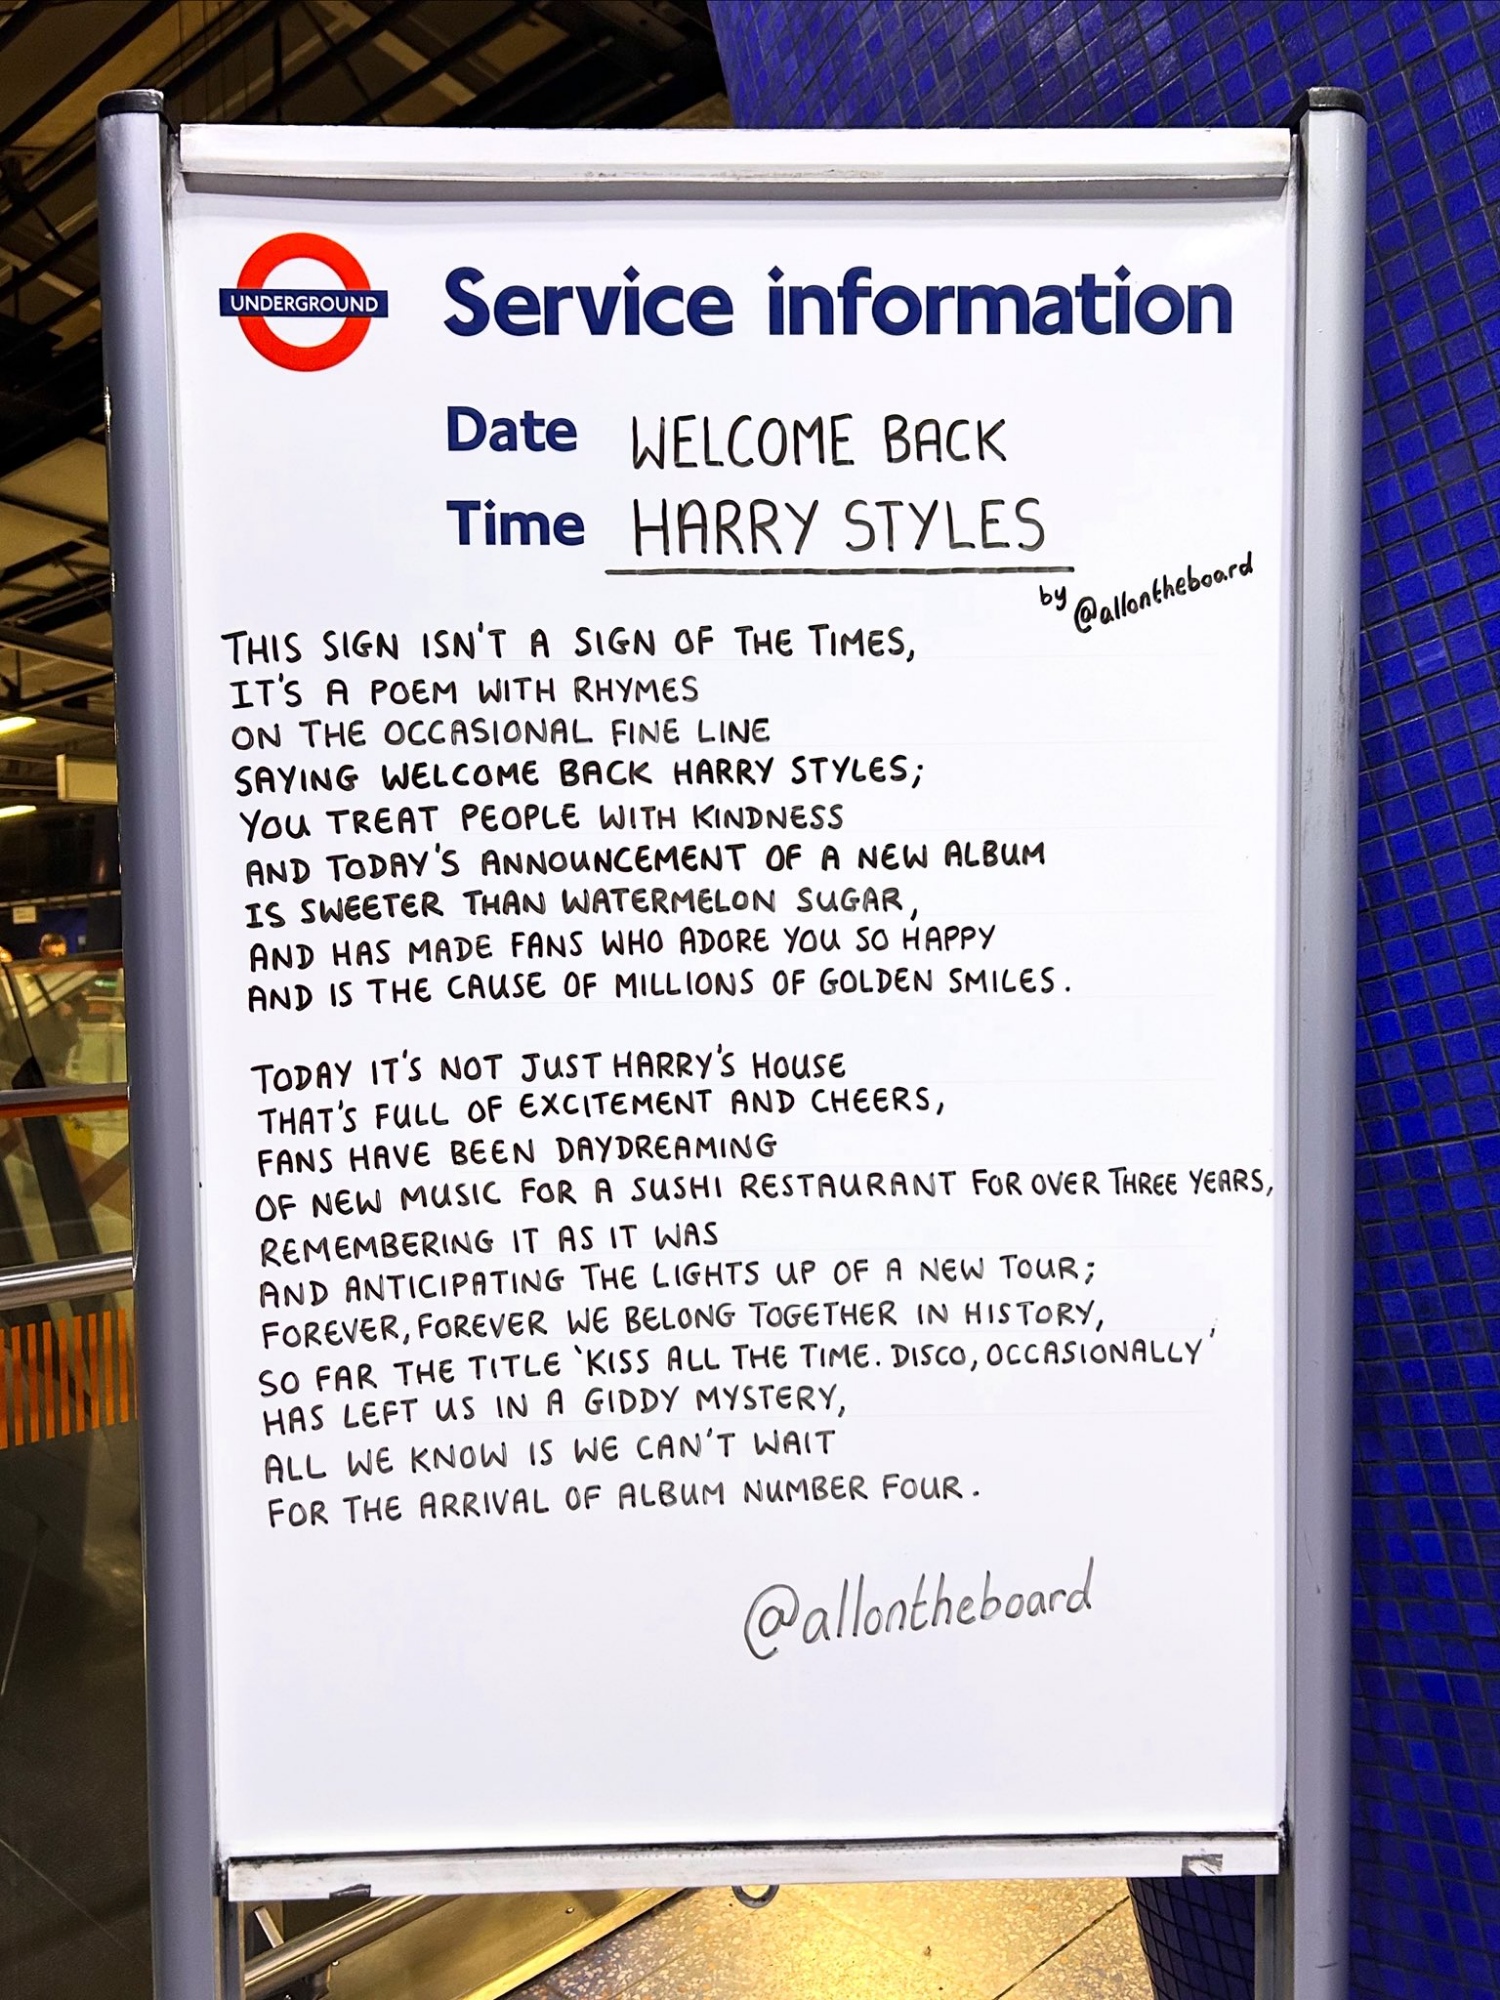 UNDERGROUND
Service information
Date WELCOME BACK
Time HARRY STYLES
by @allontheboard
THIS SIGN ISN'T A SIGN OF THE TIMES,
IT'S A POEM WITH RHYMES
ON THE OCCASIONAL FINE LINE
SAYING WELCOME BACK HARRY STYLES;
YOU TREAT PEOPLE WITH KINDNESS
AND TODAY'S ANNOUNCEMENT OF A NEW ALBUM
IS SWEETER THAN WATERMELON SUGAR,
AND HAS MADE FANS WHO ADORE YOU SO HAPPY
AND IS THE CAUSE OF MILLIONS OF GOLDEN SMILES.
TODAY IT'S NOT JUST HARRY'S HOUSE
THAT'S FULL OF EXCITEMENT AND CHEERS,
FANS HAVE BEEN DAYDREAMING
OF NEW MUSIC FOR A SUSHI RESTAURANT FOR OVER THREE YEARS,
REMEMBERING IT AS IT WAS
AND ANTICIPATING THE LIGHTS UP OF A NEW TOUR;
FOREVER, FOREVER WE BELONG TOGETHER IN HISTORY,
SO FAR THE TITLE 'KISS ALL THE TIME. DISCO, OCCASIONALLY'
HAS LEFT US IN A GIDDY MYSTERY,
ALL WE KNOW IS WE CAN'T WAIT
FOR THE ARRIVAL OF ALBUM NUMBER FOUR.
@allontheboard